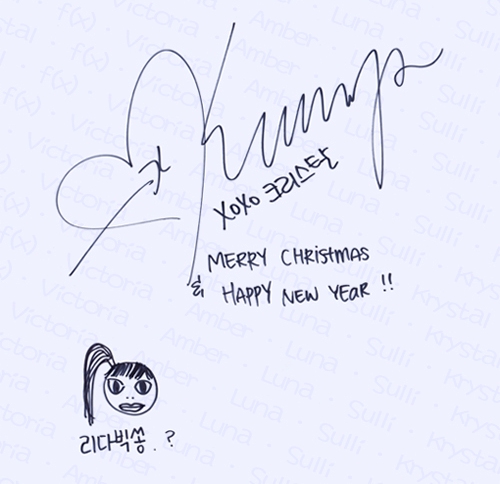 XOXO 크리스탈
MERRY CHRISTMAS
& HAPPY NEW YEAR !!
리다빅쏭. ?
f(x) · Victoria · Amber · Luna · Sulli · Krystal